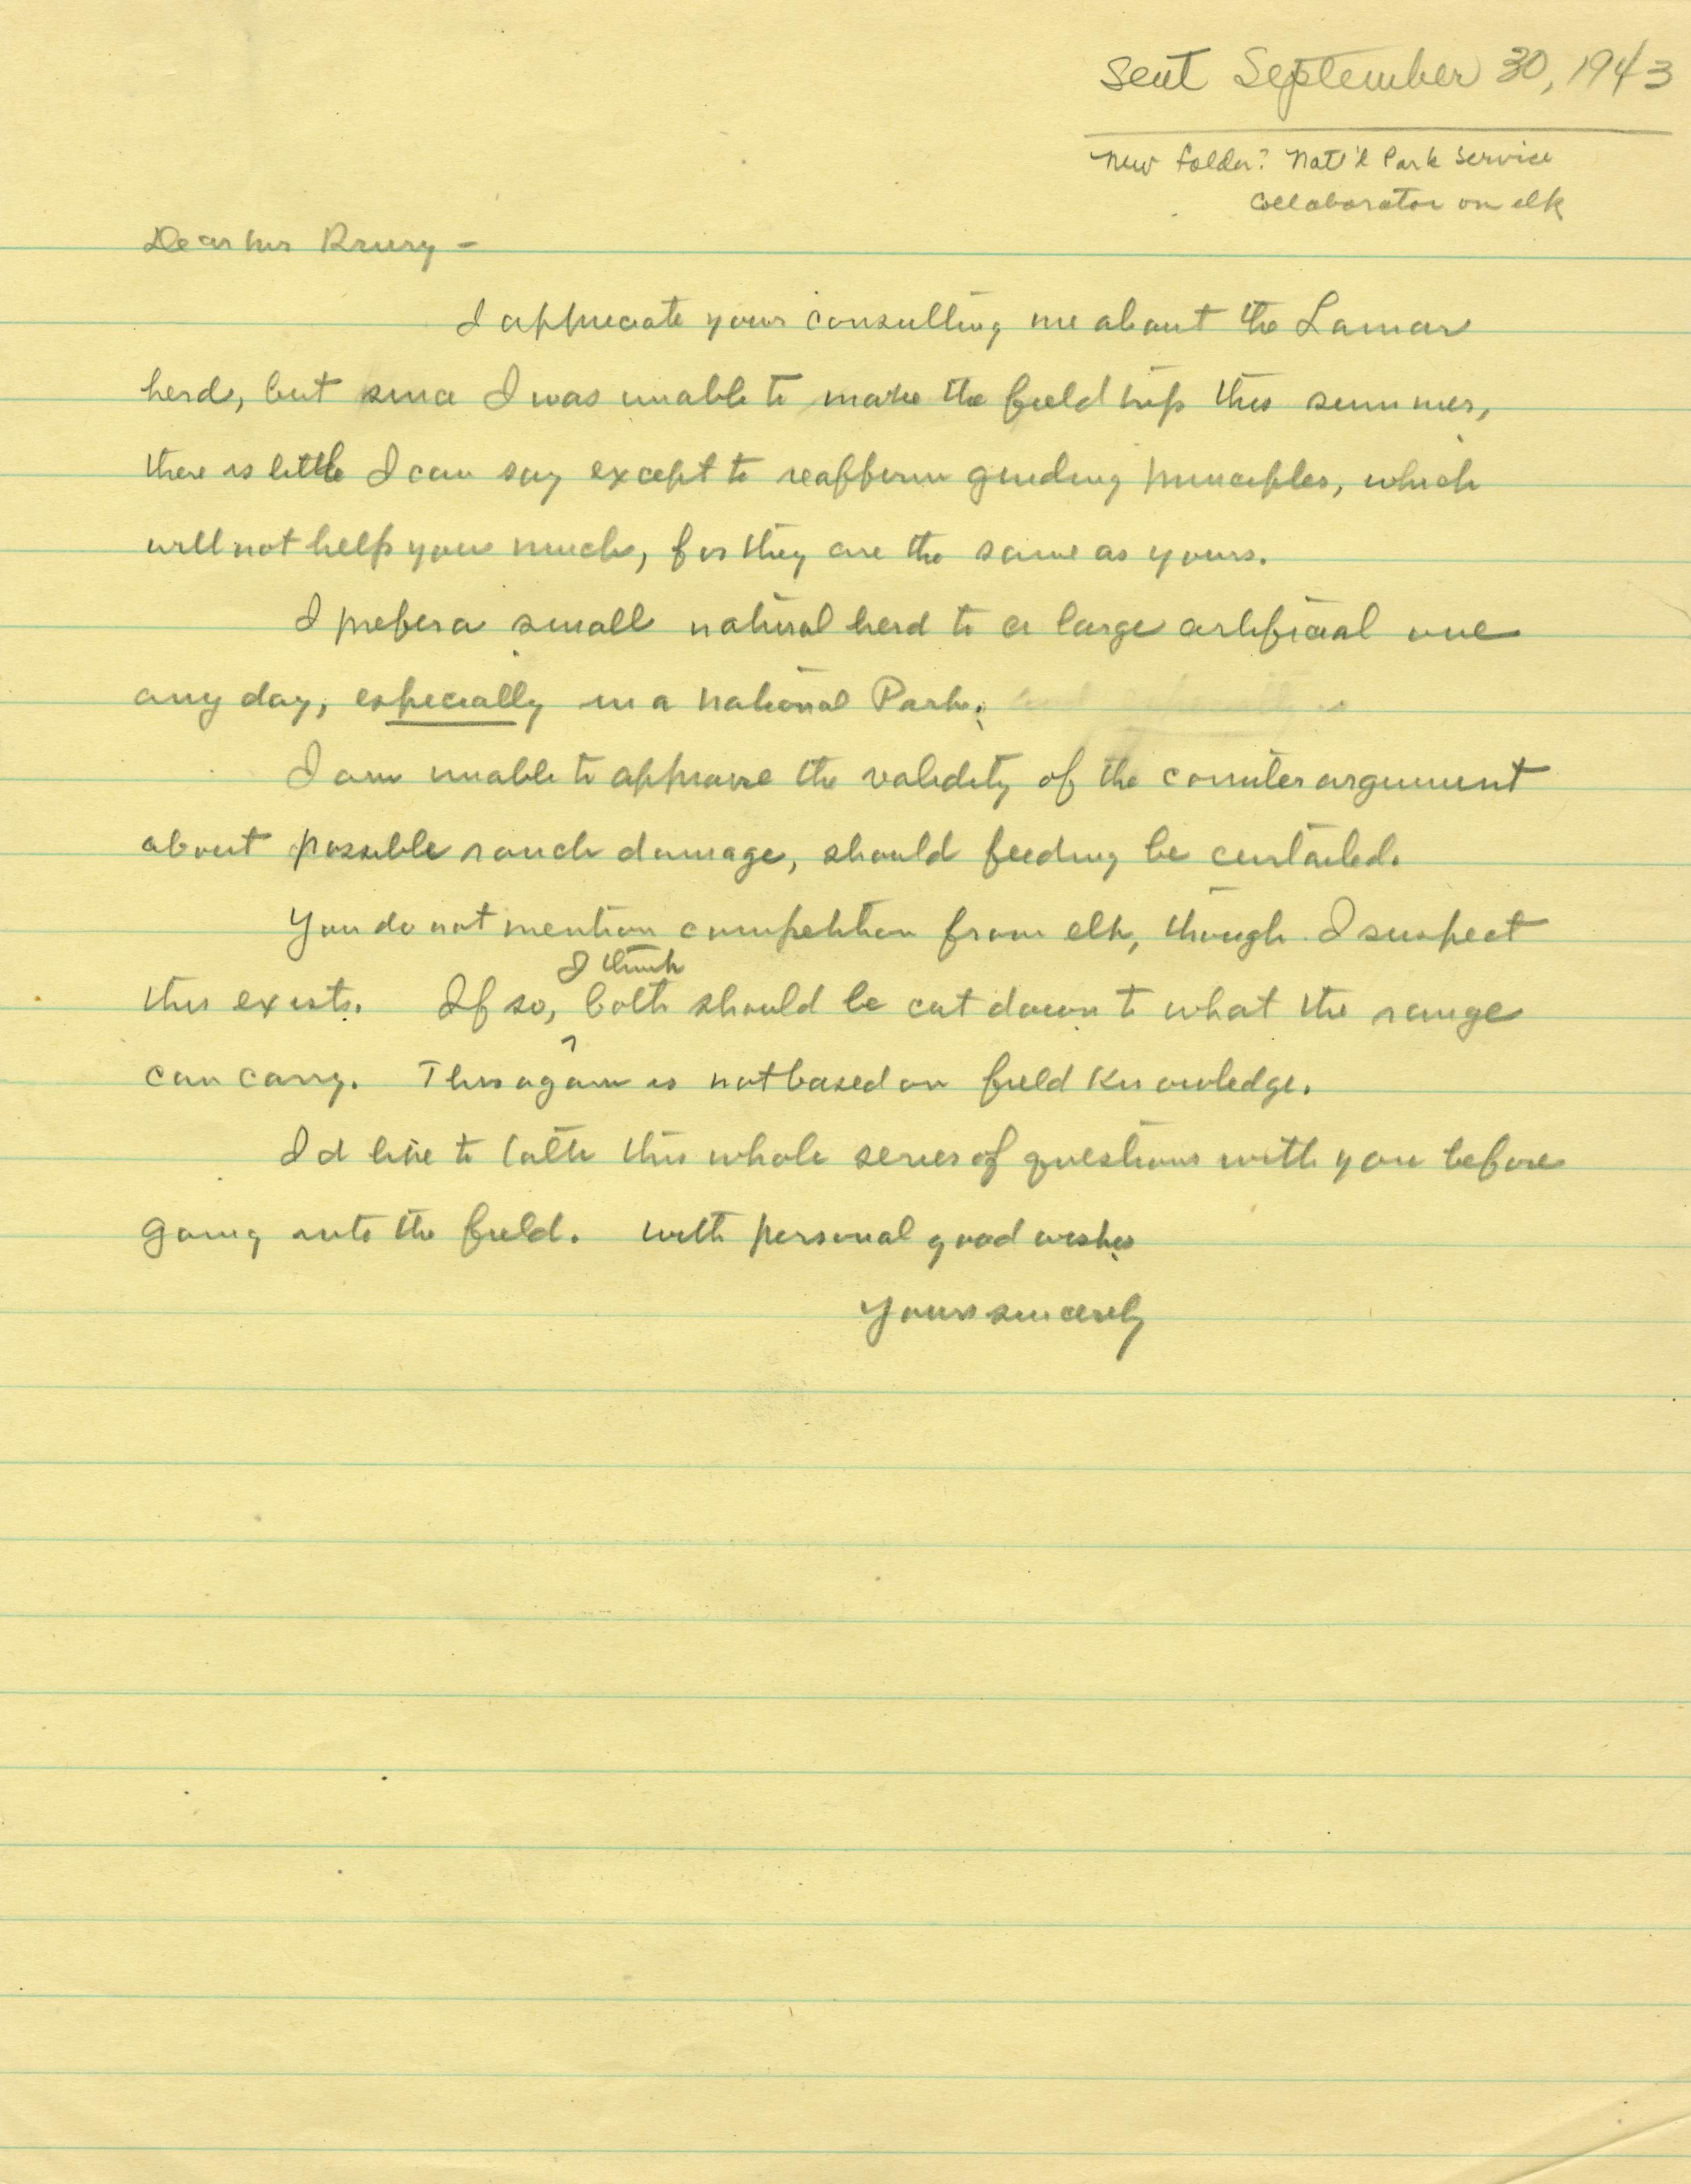 Sent September 30, 1943
New folder? Nat'l Park Service
Collaborator on elk
Dear Mr Drury -
I appreciate your consulting me about the Lamar
herd, but since I was unable to make the field trip this summer,
there is little I can say except to reaffirm guiding principles, which
will not help you much, for they are the same as yours.
I prefer a small natural herd to a large artificial one
any day, especially in a National Park.
I am unable to appraise the validity of the counter argument
about possible ranch damage, should feeding be curtailed.
You do not mention competition from elk, though I suspect
I think
this exists. If so, both should be cut down to what the range
can carry. This again is not based on field knowledge.
I'd like to talk this whole series of questions with you before
going into the field. With personal good wishes
Yours sincerely